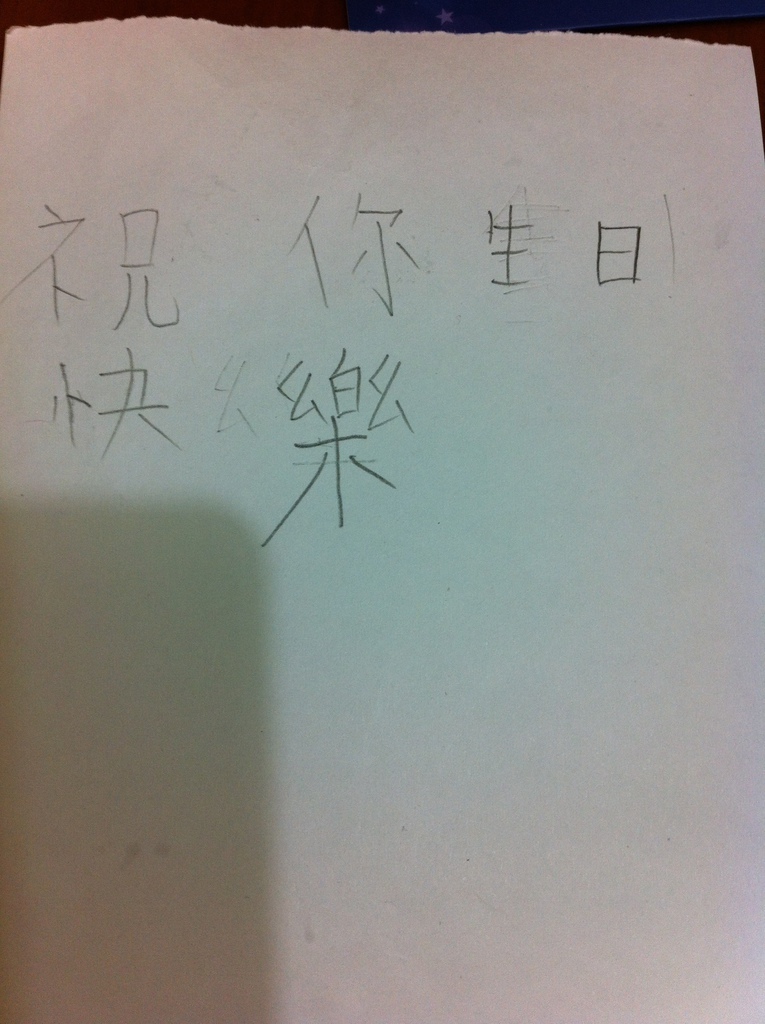 祝你生日
快樂